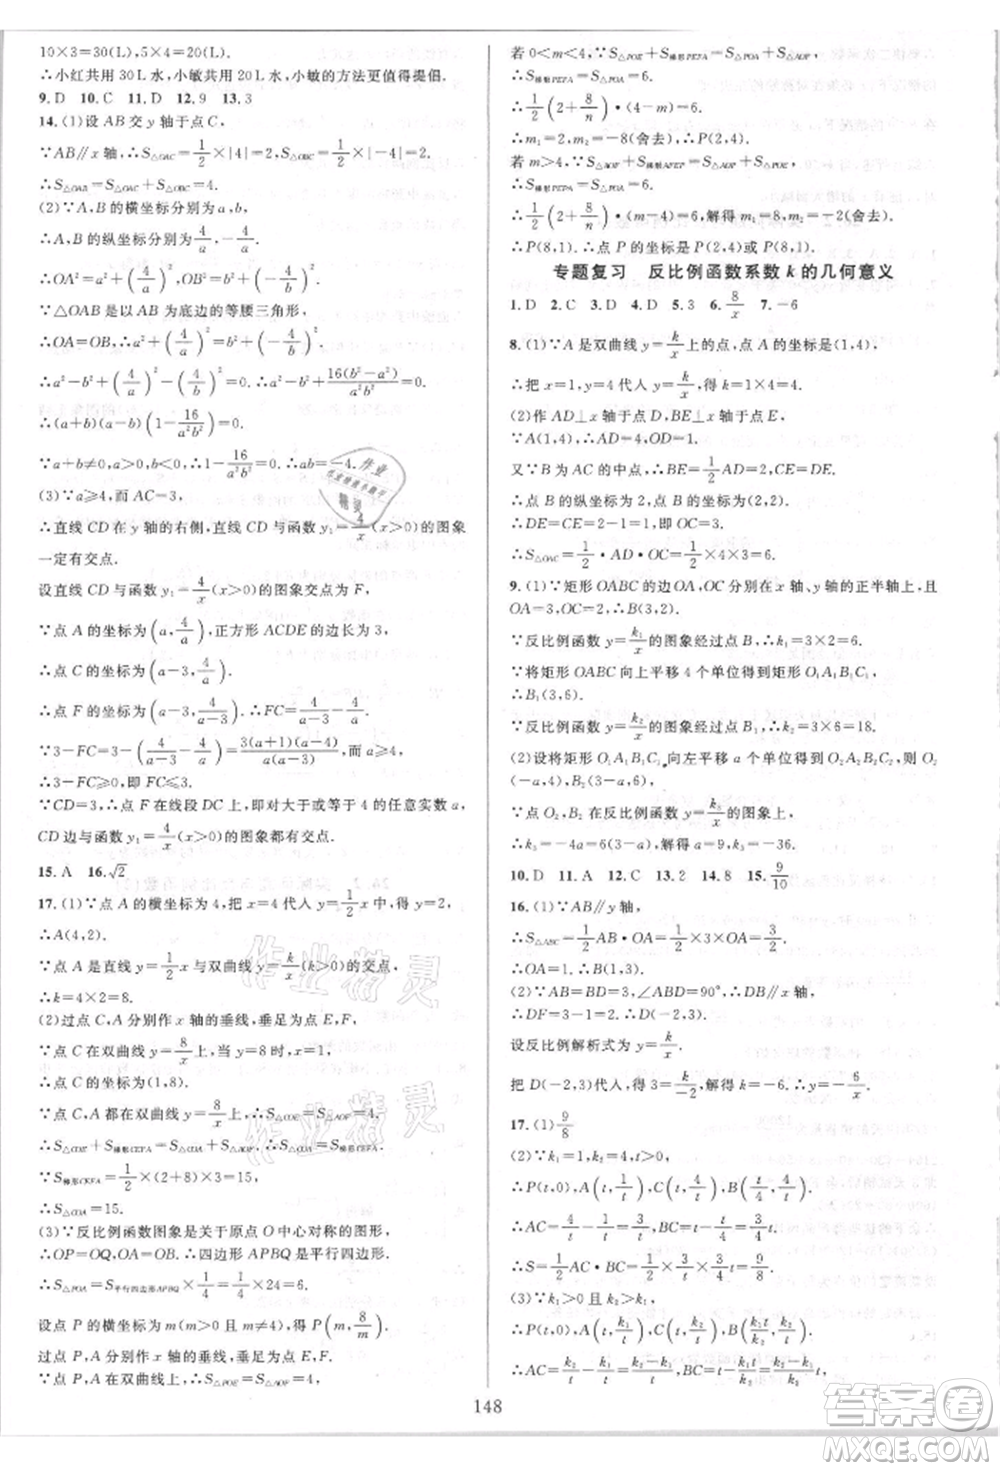 10×3=30(L),5×4=20(L).
∴小红共用 30 L 水,小敏共用 20 L 水,小敏的方法更值得提倡.
9. D 10. C 11. D 12. 9 13. 3
14. (1)设 AB 交 y 轴于点 C,
∵AB∥x 轴,∴S△OAC=1/2×|4|=2,S△OBC=1/2×|-4|=2.
∴S△OAB=S△OAC+S△OBC=4.
(2)∵A,B 的横坐标分别为 a,b,
∴A,B 的纵坐标分别为 4/a,-4/b.
∴OA²=a²+(4/a)²,OB²=b²+(-4/b)².
∵△OAB 是以 AB 为底边的等腰三角形,
∴OA=OB,∴a²+(4/a)²=b²+(-4/b)².
∴a²-b²+(4/a)²-(4/b)²=0.∴a²-b²+16(b²-a²)/a²b²=0.
∴(a+b)(a-b)(1-16/a²b²)=0.
∵a+b≠0,a>0,b<0,∴1-16/a²b²=0.∴ab=-4.
(3)∵a≥4,而 AC=3,
∴直线 CD 在 y 轴的右侧,直线 CD 与函数 y₁=4/x(x>0)的图象
一定有交点.
设直线 CD 与函数 y₁=4/x(x>0)的图象交点为 F,
∵点 A 的坐标为(a,4/a),正方形 ACDE 的边长为 3,
∴点 C 的坐标为(a-3,4/a).
∴点 F 的坐标为(a-3,4/(a-3)).∴FC=4/(a-3)-4/a.
∵3-FC=3-(4/(a-3)-4/a)=3(a+1)(a-4)/a(a-3),
∴3-FC≥0,即 FC≤3.
∵CD=3,∴点 F 在线段 DC 上,即对大于或等于 4 的任意实数 a,
CD 边与函数 y₁=4/x(x>0)的图象都有交点.
15. A 16. √2
17. (1)∵点 A 的横坐标为 4,把 x=4 代入 y=1/2x 中,得 y=2,
∴A(4,2).
∵点 A 是直线 y=1/2x 与双曲线 y=k/x(k>0)的交点,
∴k=4×2=8.
(2)过点 C,A 分别作 x 轴的垂线,垂足为点 E,F,
∵点 C 在双曲线 y=8/x 上,当 y=8 时,x=1,
∴点 C 的坐标为(1,8).
∵点 C,A 都在双曲线 y=8/x 上,∴S△COE=S△AOF=4.
∴S△COE+S梯形CEFA=S△COA+S△AOF.∴S△COA=S梯形CEFA.
∵S梯形CEFA=1/2×(2+8)×3=15,
∴S△COA=15.
(3)∵反比例函数图象是关于原点 O 中心对称的图形,
∴OP=OQ,OA=OB.∴四边形 APBQ 是平行四边形.
∴S△POA=S平行四边形APBQ×1/4=1/4×24=6.
设点 P 的横坐标为 m(m>0 且 m≠4),得 P(m,8/m).
过点 P,A 分别作 x 轴的垂线,垂足为点 E,F,
∵点 P,A 在双曲线上,∴S△POE=S△AOF=4,
若 0<m<4,∵S△POE+S梯形PEFA=S△POA+S△AOF,
∴S梯形PEFA=S△POA=6.
∴1/2(2+8/n)·(4-m)=6.
∴m₁=2,m₂=-8(舍去).∴P(2,4).
若 m>4,∵S△AOF+S梯形AFEP=S△AOP+S△POE,
∴S梯形PEFA=S△POA=6.
∴1/2(2+8/n)·(m-4)=6,解得 m₁=8,m₂=-2(舍去).
∴P(8,1).∴点 P 的坐标是 P(2,4)或 P(8,1).
专题复习 反比例函数系数 k 的几何意义
1. D 2. C 3. D 4. D 5. 3 6. 8/x 7. -6
8. (1)∵A 是双曲线 y=k/x 上的点,点 A 的坐标是(1,4),
∴把 x=1,y=4 代入 y=k/x,得 k=1×4=4.
(2)作 AD⊥x 轴于点 D,BE⊥x 轴于点 E,
∵A(1,4),∴AD=4,OD=1.
又∵B 为 AC 的中点,∴BE=1/2AD=2.
∴点 B 的纵坐标为 2,点 B 的坐标为(2,2).
∴DE=CE=2-1=1,即 OC=3.
∴S△OAC=1/2·AD·OC=1/2×4×3=6.
9. (1)∵矩形 OABC 的边 OA,OC 分别在 x 轴、y 轴的正半轴上,且
OA=3,OC=2,∴B(3,2).
∵反比例函数 y=k₁/x 的图象经过点 B,∴k₁=3×2=6.
∵将矩形 OABC 向上平移 4 个单位得到矩形 O₁A₁B₁C₁,
∴B₁(3,6).
∵反比例函数 y=k₂/x 的图象经过点 B₁,∴k₂=3×6=18.
(2)设将矩形 O₁A₁B₁C₁ 向左平移 a 个单位得到 O₂A₂B₂C₂,则 O₂
(-a,4),B₂(3-a,6).
∵点 O₂,B₂ 在反比例函数 y=k₃/x 的图象上,
∴k₃=-4a=6(3-a).解得 a=9,∴k₃=-36.
10. D 11. A 12. C 13. 2 14. 8 15. 9/10
16. (1)∵AB∥y 轴,
∴S△ABC=1/2AB·OA=1/2×3×OA=3/2.
∴OA=1.∴B(1,3).
(2)∵AB=BD=3,∠ABD=90°,∴BD∥x 轴,
∴DF=3-1=2.∴D(-2,3).
设反比例解析式为 y=k/x,
把 D(-2,3)代入,得 3=k/-2,解得 k=-6.∴y=-6/x.
17. (1)9/8
(2)∵k₁=1,k₂=4,PB∥x 轴,PC∥y 轴,
∴P(t,0),A(t,1/t),C(t,4/t),B(t/4,4/t).
∴AC=4/t-1/t=3/t,BC=t-t/4=3/4t,
∴S=1/2AC·BC=1/2×3/t×3/4t=9/8.
(3)∵k₁>0 且 k₂>0,
∴P(t,0),A(t,k₁/t),C(t,k₂/t),B(k₁/k₂t,k₂/t).
∴AC=k₂/t-k₁/t=(k₂-k₁)/t,BC=t-k₁/k₂t=(k₂-k₁)/k₂t,
148
作业精灵
作业精灵
答案圈
MXQE.COM